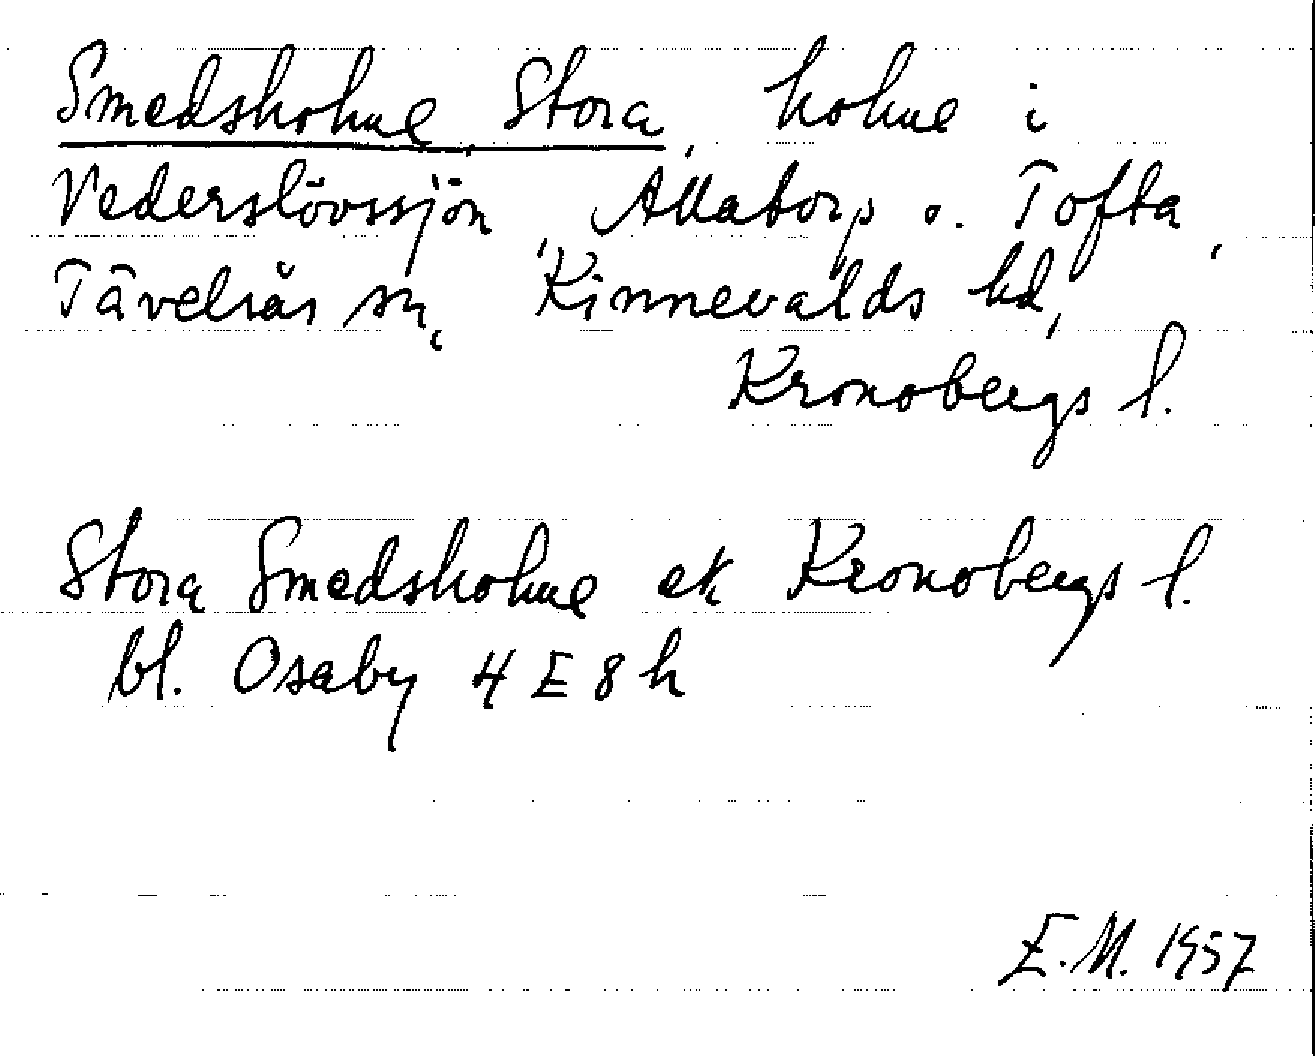 Smedsholme, Stora, holme i
Vederslövssjön, Allatorp o. Tofta,
Tävelsås sn, Kinnevalds hd,
Kronobergs l.
Stora Smedsholme ek Kronobergs l.
bl. Osaby 4 E 8 h
E.M. 1957